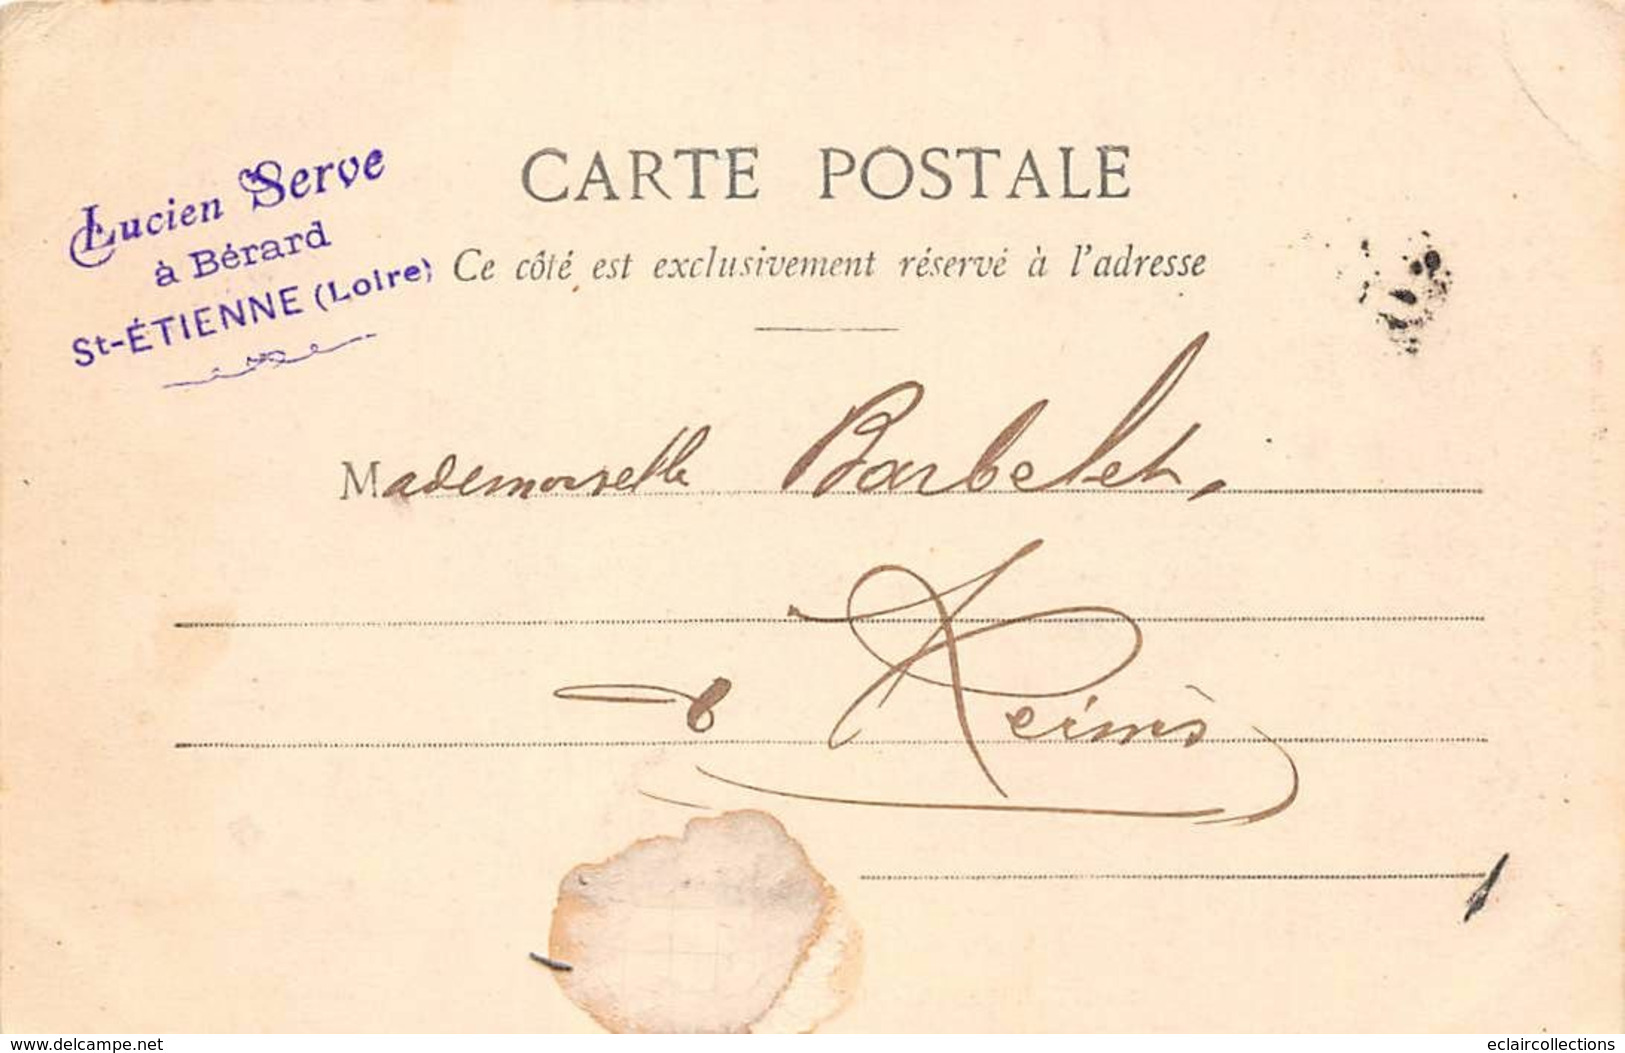 Lucien Serve
à Bérard
St-ÉTIENNE (Loire)
CARTE POSTALE
Ce côté est exclusivement réservé à l'adresse
Mademoiselle Barbelet,
à Reims
www.delcampe.net
eclaircollections